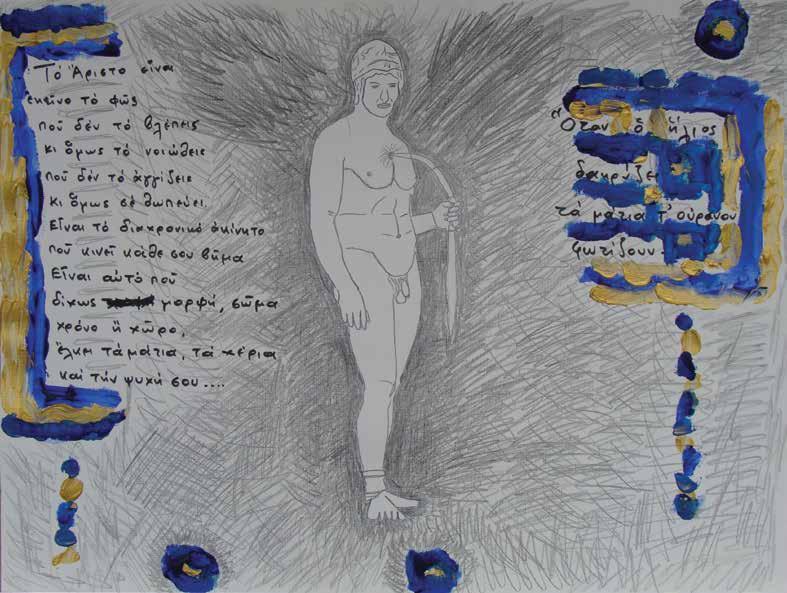 Τό Ἄριστο εἶναι
ἐκεῖνο τό φῶς
ποῦ δέν τό βλέπεις
κι ὅμως τό νοιώθεις
ποῦ δέν τό ἀγγίζεις
κι ὅμως σέ θωπεύει.
Εἶναι τό διαχρονικό ἀκίνητο
ποῦ κινεῖ κάθε σου βῆμα
Εἶναι αὐτό ποῦ
δίχως μορφή, σῶμα
χρόνο ἤ χῶρο,
ἕλκει τά μάτια, τά χέρια
καί τήν ψυχή σου ....
Ὅταν ὁ ἥλιος
δακρύζει
τά μάτια τ' οὐρανοῦ
φωτίζουν